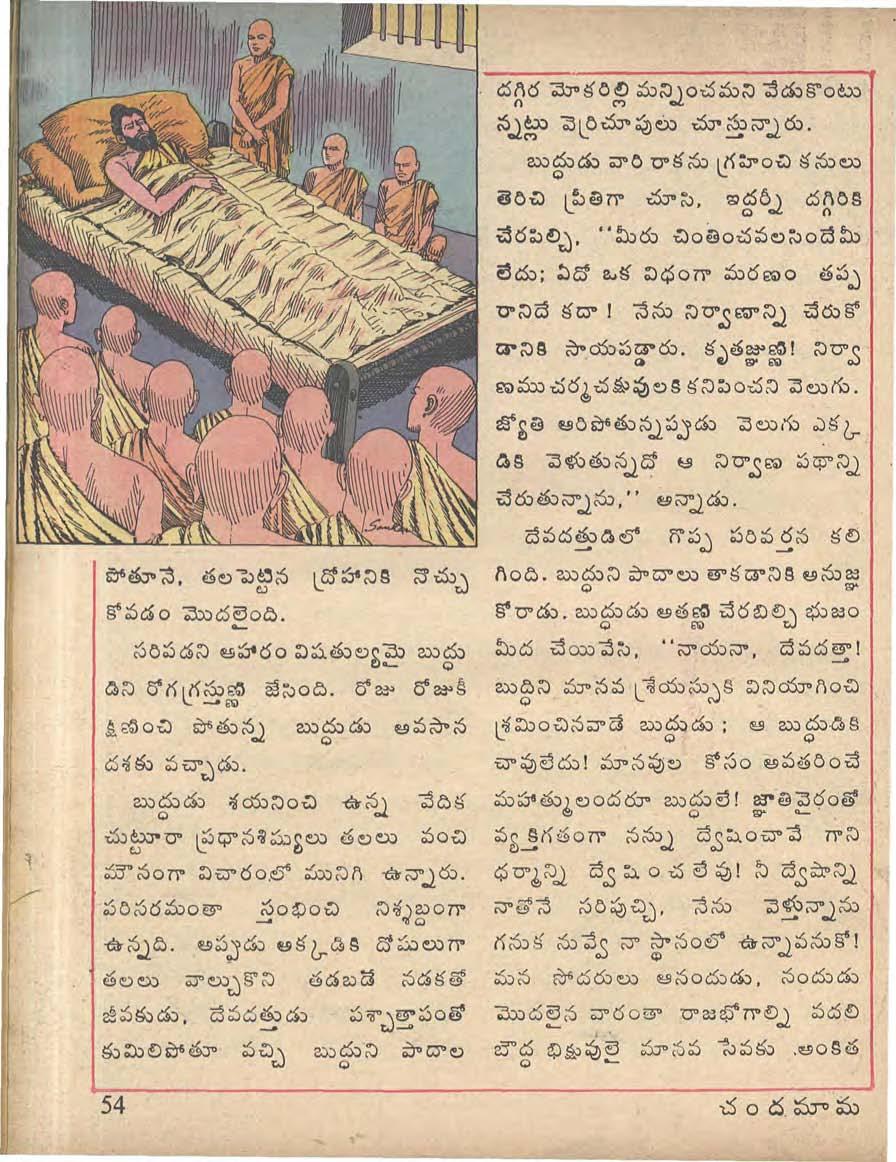 పోతూనే, తలపెట్టిన ద్రోహానికి నొచ్చు
కోవడం మొదలైంది.
సరిపడని ఆహారం విషతుల్యమై బుద్ధు
డిని రోగగ్రస్తుణ్ణి జేసింది. రోజు రోజుకీ
క్షీణించి పోతున్న బుద్ధుడు అవసాన
దశకు వచ్చాడు.
బుద్ధుడు శయనించి ఉన్న వేదిక
చుట్టూరా ప్రధానశిష్యులు తలలు వంచి
మౌనంగా విచారంలో మునిగి ఉన్నారు.
పరిసరమంతా స్తంభించి నిశ్శబ్దంగా
ఉన్నది. అప్పుడు అక్కడికి దోషులుగా
తలలు వాల్చుకొని తడబడే నడకతో
జీవకుడు, దేవదత్తుడు పశ్చాత్తాపంతో
కుమిలిపోతూ వచ్చి బుద్ధుని పాదాల
దగ్గిర మోకరిల్లి మన్నించమని వేడుకొంటు
న్నట్లు వెర్రిచూపులు చూస్తున్నారు.
బుద్ధుడు వారి రాకను గ్రహించి కనులు
తెరిచి ప్రీతిగా చూసి, ఇద్దర్నీ దగ్గిరికి
చేరపిల్చి, ‘‘మీరు చింతించవలసిందేమీ
లేదు; ఏదో ఒక విధంగా మరణం తప్ప
రానిదే కదా! నేను నిర్వాణాన్ని చేరుకో
డానికి సాయపడ్డారు. కృతజ్ఞుణ్ణి! నిర్వా
ణము చర్మచక్షువులకి కనిపించని వెలుగు.
జ్యోతి ఆరిపోతున్నప్పుడు వెలుగు ఎక్క
డికి వెళుతున్నదో ఆ నిర్వాణ పథాన్ని
చేరుతున్నాను,’’ అన్నాడు.
దేవదత్తుడిలో గొప్ప పరివర్తన కలి
గింది. బుద్ధుని పాదాలు తాకడానికి అనుజ్ఞ
కోరాడు. బుద్ధుడు అతణ్ణి చేరబిల్చి భుజం
మీద చేయివేసి, ‘‘నాయనా, దేవదత్తా!
బుద్ధిని మానవ శ్రేయస్సుకి వినియోగించి
శ్రమించినవాడే బుద్ధుడు; ఆ బుద్ధుడికి
చావులేదు! మానవుల కోసం అవతరించే
మహాత్ములందరూ బుద్ధులే! జ్ఞాతివైరంతో
వ్యక్తిగతంగా నన్ను ద్వేషించావే గాని
ధర్మాన్ని ద్వేషించలేవు! నీ ద్వేషాన్ని
నాతోనే సరిపుచ్చి, నేను వెళ్తున్నాను
గనుక నువ్వే నా స్థానంలో ఉన్నావనుకో!
మన సోదరులు ఆనందుడు, నందుడు
మొదలైన వారంతా రాజభోగాల్ని వదలి
బౌద్ధ భిక్షువులై మానవ సేవకు అంకిత
54
చందమామ